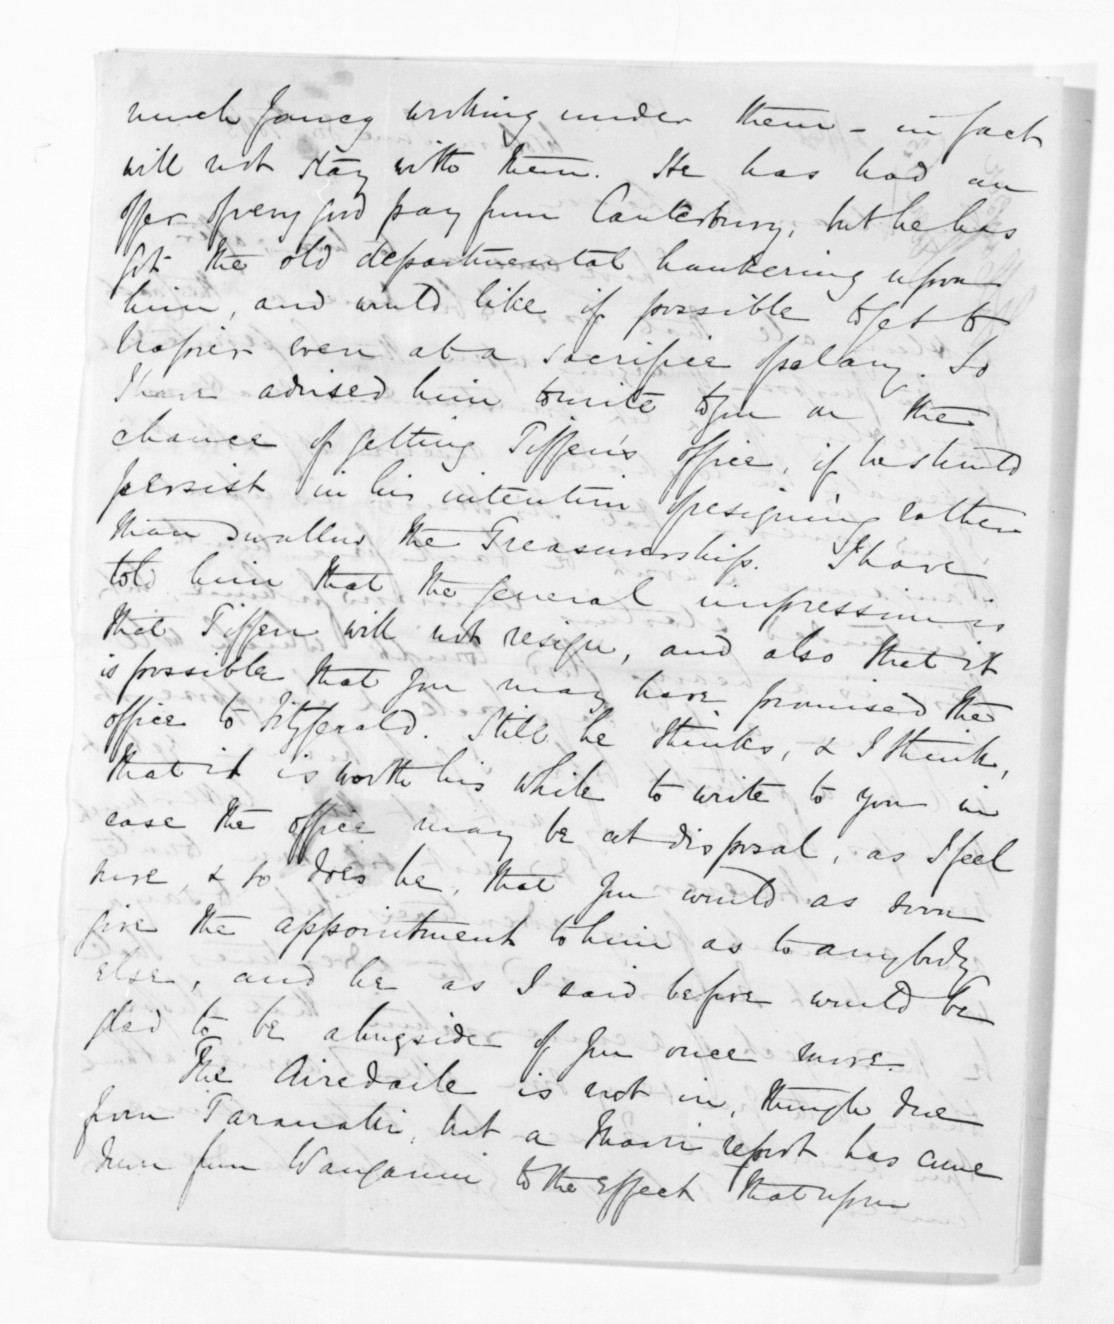 much fancy working under them - in fact
will not stay with them. He has had an
offer of very good pay from Canterbury, but he has
got the old departmental hankering upon
him, and would like if possible to get to
Napier even at a sacrifice of salary. So
I have advised him to write to you on the
chance of getting Tiffen's office, if he should
persist in his intention of resigning rather
than swallow the Treasurership. I have
told him that the general impression is
that Tiffen will not resign, and also that it
is possible that you may have promised the
office to Fitzgerald. Still he thinks, & I think,
that it is worth his while to write to you in
case the office may be at disposal, as I feel
sure, & so does he, that you would as soon
give the appointment to him as to anybody
else, and he as I said before would be
glad to be alongside of you once more.
The Airedale is not in, though due
from Taranaki, but a Maori report has come
down from Wanganui to the effect that upon